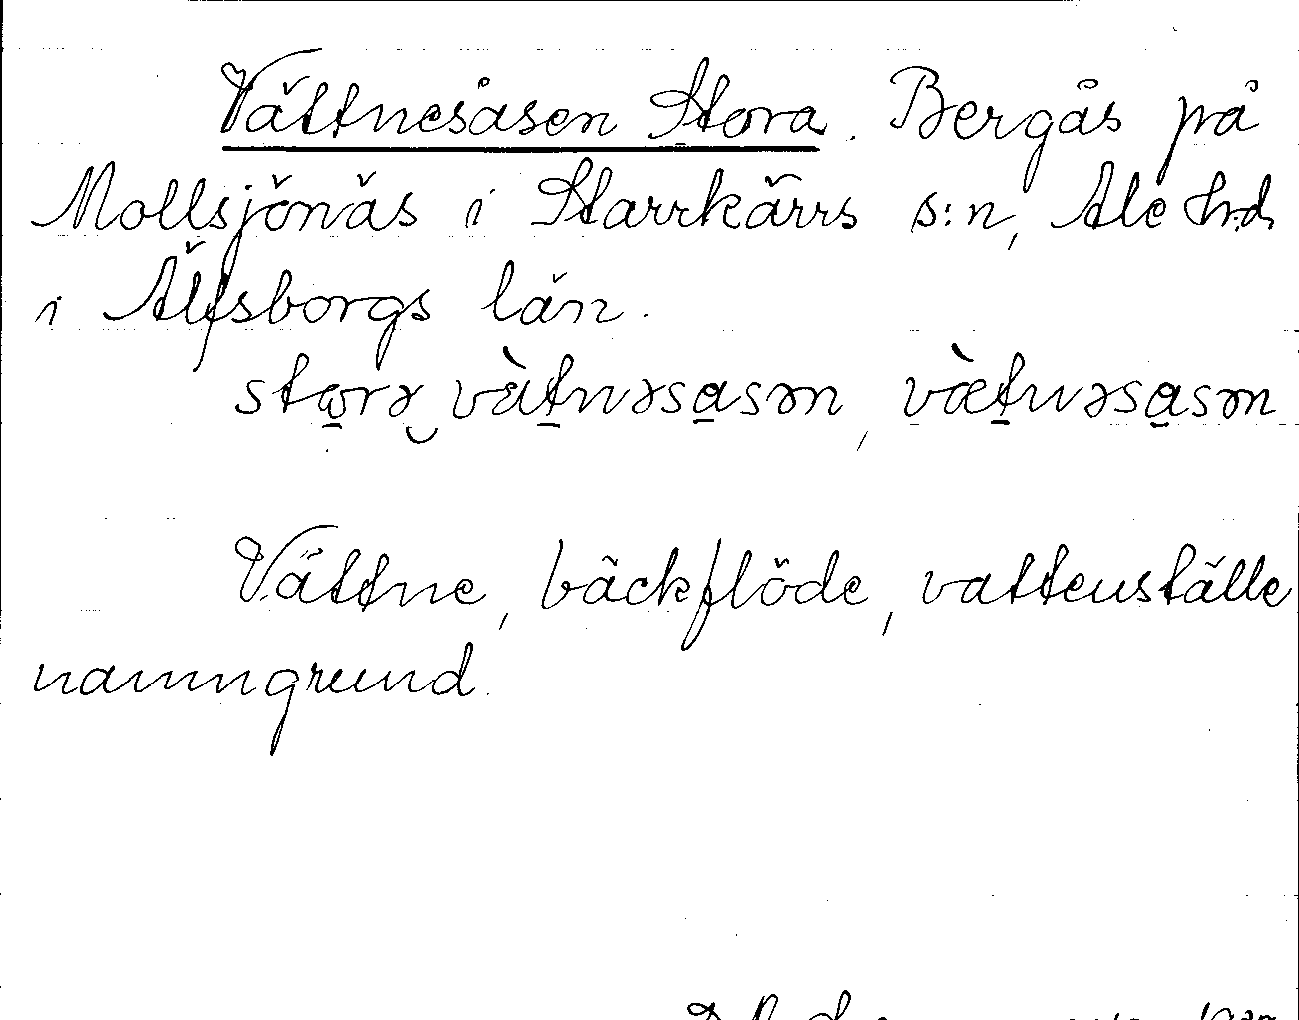 Vättnesåsen Stora. Bergås på
Mollsjönäs i Starrkärrs s:n, Ale hrd.
i Älfsborgs län.
storə vätnəsasən, vætnəsasən
Vättne, bäckflöde, vattenställe
namngrund.